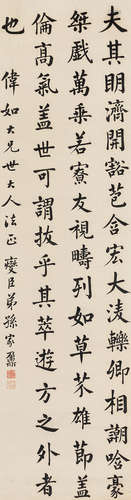 夫其明濟開豁苞含宏大淩轢卿相嘲哈豪
桀戲萬乘若寮友視疇列如草芥雄節邁
倫高氣蓋世可謂拔乎其萃遊方之外者
也
偉如大兄世大人法正 燮臣弟孫家鼐